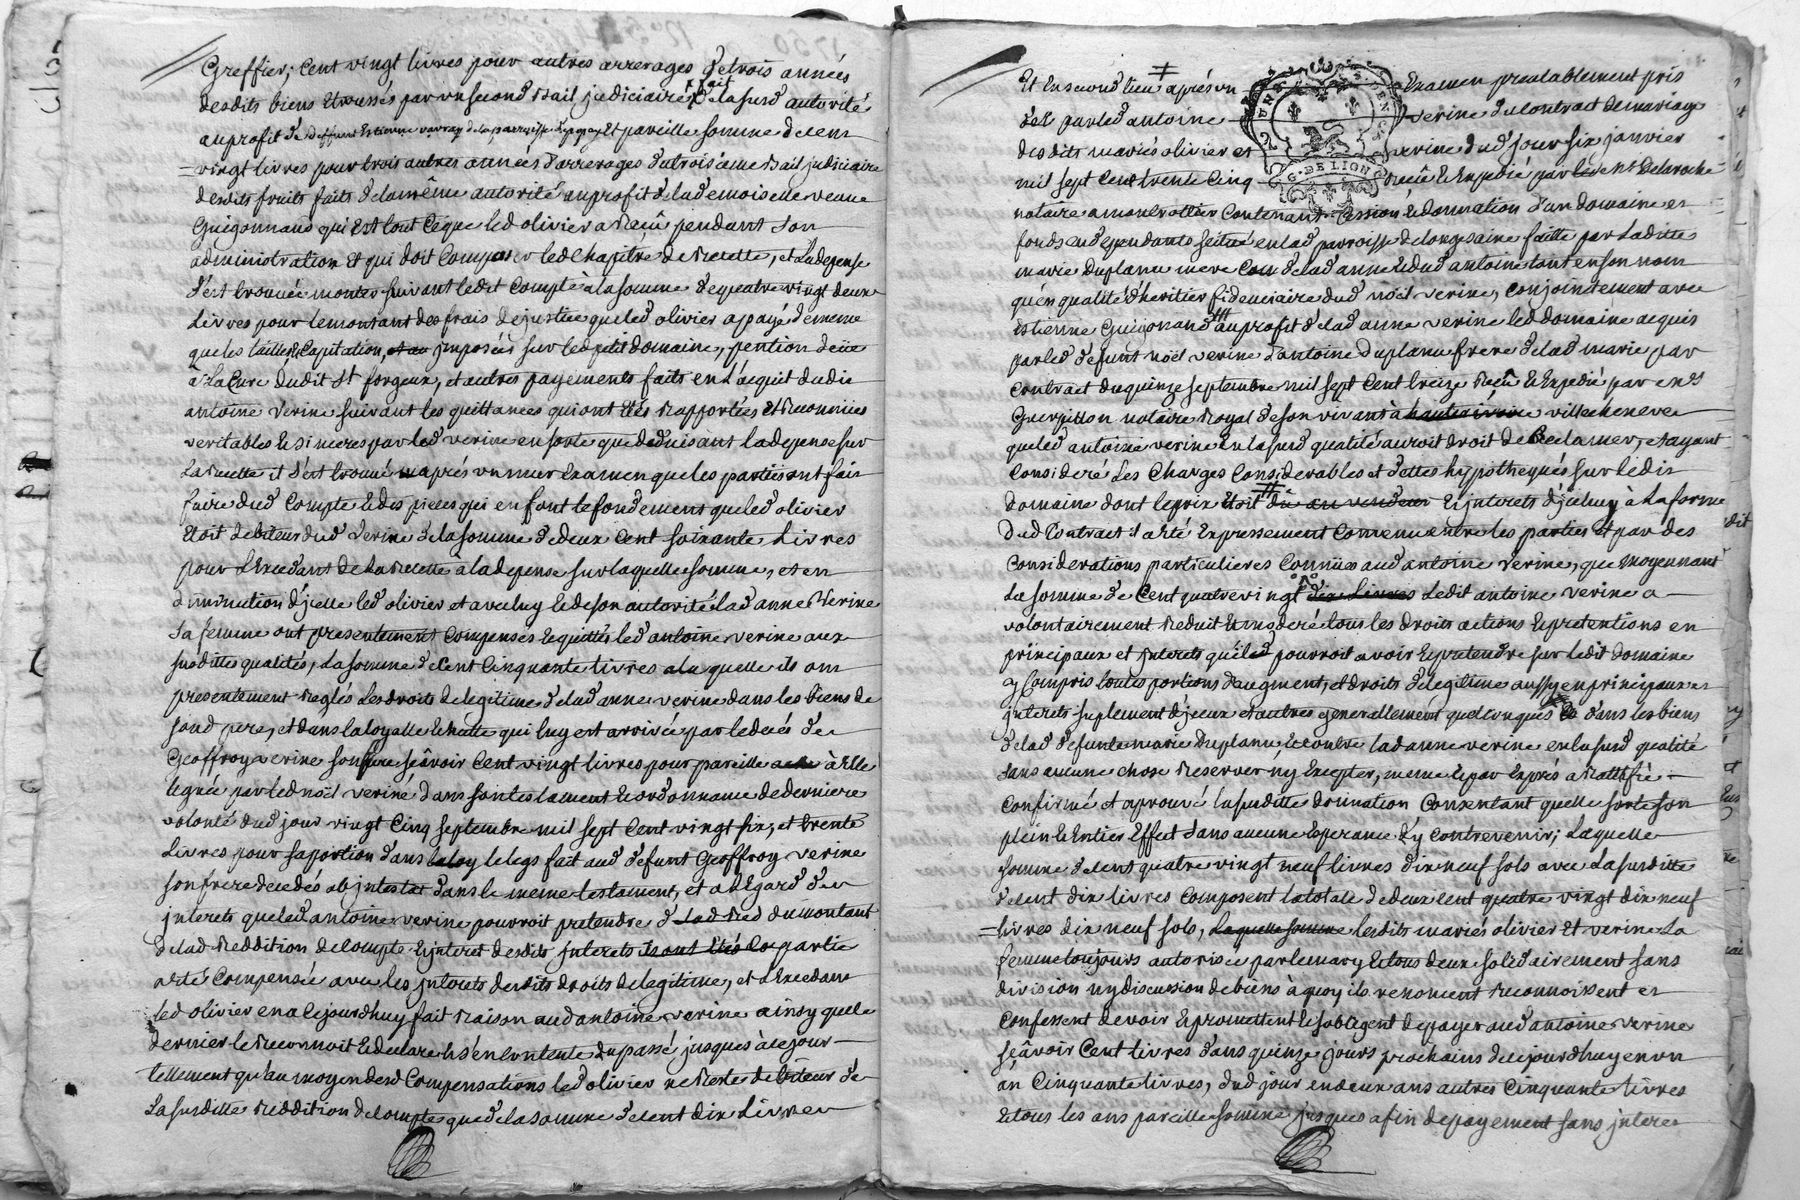 Greffier, Cent vingt livres pour autres arrerages de trois années
desdits biens par un second Bail judiciaire fait de lasusd autorité
au profit de deffunt Estienne de la parroisse et pareille somme de cent
vingt livres pour trois autres années d'arrerages du troisieme Bail judiciaire
desdits fruits faits de la même autorité au profit de lad demoiselle veuve
Guigonnand qui Est tout Ceque led olivier a Receu pendant son
administration Et qui doit Composer led Chapitre de Recette, et Ladepense
s'est trouvée monter suivant ledit Compte à la somme de quatre vingt deux
Livres pour le montant des frais de justice que led olivier a payé de meme
que les tailles, Capitation, jmposées sur led petit domaine, pention deüe
à La Cure dudit St forgeux, et autres payements faits en L'acquit dudit
antoine verine suivant les quittances qui ont Etés Rapportées et Reconnües
veritables et sinceres par led verine en sorte que deduisant la depense sur
La Recette il s'est trouvé aprés un mur Examen que les parties ont fait
faire dud Compte et des pieces qui en font le fondement que led olivier
Etoit debiteur dud verine de la somme de deux cent soixante Livres
pour L'Excedant de la Recette à la depense sur laquelle somme, et en
diminution d'jcelle led olivier et avec luy et de son autorité lad anne Verine
sa femme ont presentement Compensés et quittés led antoine verine aux
susdittes qualités, La somme de Cent Cinquante livres a la quelle ils ont
presentement Reglés Les droits de legitime de lad anne verine dans les biens de
sond pere, et dans la loyalle Echutte qui luy est arrivée par le decés de
Geoffroy verine son frere sçâvoir Cent vingt livres pour pareille à Elle
leguée par led noël verine dans son testament et ordonnance de derniere
volonté dud jour vingt Cinq septembre mil sept Cent vingt six, et trente
Livres pour sa portion dans le legs fait aud defunt Geoffroy verine
son frere decedés abjntestat dans le meme testament, et a L'Egard des
jnterets que led antoine verine pourroit pretendre du montant
de lad Reddition de Compte et jnteret desdits jnterets le partie
a Eté Compensée avec les jnterets desdits droits de legitime, et L'Excedant
led olivier en a Cejourdhuy fait Raison aud antoine verine ainsy que le
dernier le Reconnoit et declare s'en Contente du passé jusques à Ce jour
tellement qu'au moyen desd Compensations led olivier ne Reste debiteur de
La susditte Reddition de Compte que de la somme de cent dix Livres
Et En second lieu aprés un Examen prealablement pris
par led antoine verine du Contract de mariage
desdits mariés olivier et verine dud jour six janvier
mil sept Cent trente Cinq Receu et Expedié par Me Delaroche
notaire a montrottier Contenant Cession et donnation d'un domaine et
fonds en dependants scitué en lad parroisse de longesaine faitte par La ditte
marie Duplanu mere de lad anne et dud antoine tant en son nom
qu'en qualité d'heritier fidenciaire dud noël verine, Conjointement avec
Estienne Guigonnand au profit de lad anne verine led domaine acquis
par led defunt noël verine d'antoine Duplanu frere de lad marie par
Contract du quinze septembre mil sept Cent treize Receu et Expedié par Me
notaire Royal de son vivant à villecheneve
que led antoine verine En la susd qualité auroit droit de Reclamer, et ayant
Consideré Les Charges Considerables et dettes hypothequés sur Ledit
Domaine dont le prix Etoit dû au vendeur Et jnterets d'jceluy à La forme
Dud Contract il a été Expressement Convenu entre les parties et par des
Considerations particulieres Connües aud antoine verine, que moyennant
La somme de Cent quatre vingt dix Livres Ledit antoine verine a
volontairement Reduit et moderé tous les droits actions et pretentions en
principaux et jnterets qu'il pourroit avoir et pretendre sur ledit Domaine
y Compris toutes portions d'augment, et droits de legitime aussy en principaux et
jnterets suplement d'jceux et autres generallement quelconques dans les biens
de lad defunte marie Duplanu et Contre lad anne verine en la susd qualité
sans aucune chose Reserver ny Excepter, meme Et par Exprés a Rattiffié
Confirmé et aprouvé la susditte donnation Consentant qu'elle sorte son
plein et Entier Effect sans aucune Esperance d'y Contrevenir; Laquelle
somme de Cent quatre vingt neuf livres dix neuf sols avec La susditte
de cent dix livres Composent la totale de deux Cent quatre vingt dix neuf
livres dix neuf sols, Laquelle somme lesdits mariés olivier Et verine La
femme toujours autorisée par le mary Et tous deux solidairement sans
division ny discussion de biens à quoy ils renoncent Reconnoissent et
Confessent devoir et promettent et s'obligent de payer aud antoine verine
sçâvoir Cent livres dans quinze jours prochains de Cejourdhuy en un
an Cinquante livres, dud jour en deux ans autres Cinquante livres
Et tous les ans pareille somme jusques a fin de payement sans jnterets